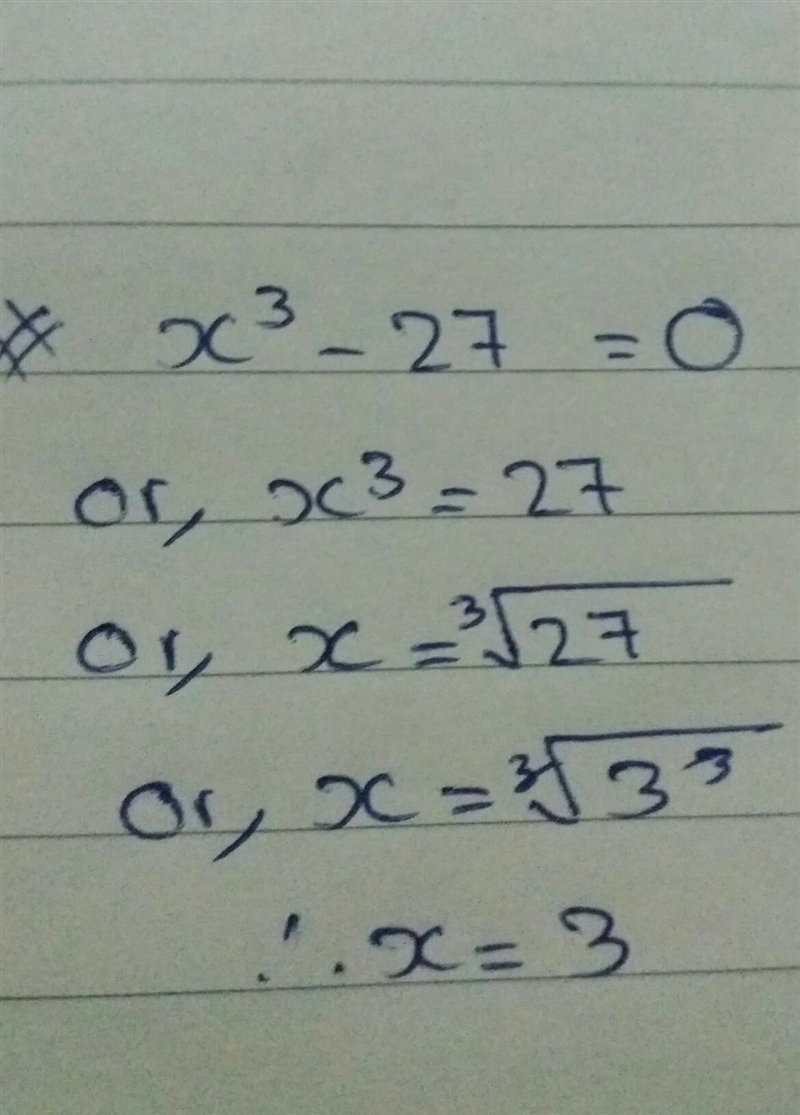 ※ x³ - 27 = 0
or, x³ = 27
or, x = ³√27
or, x = ³√3³
∴ x = 3